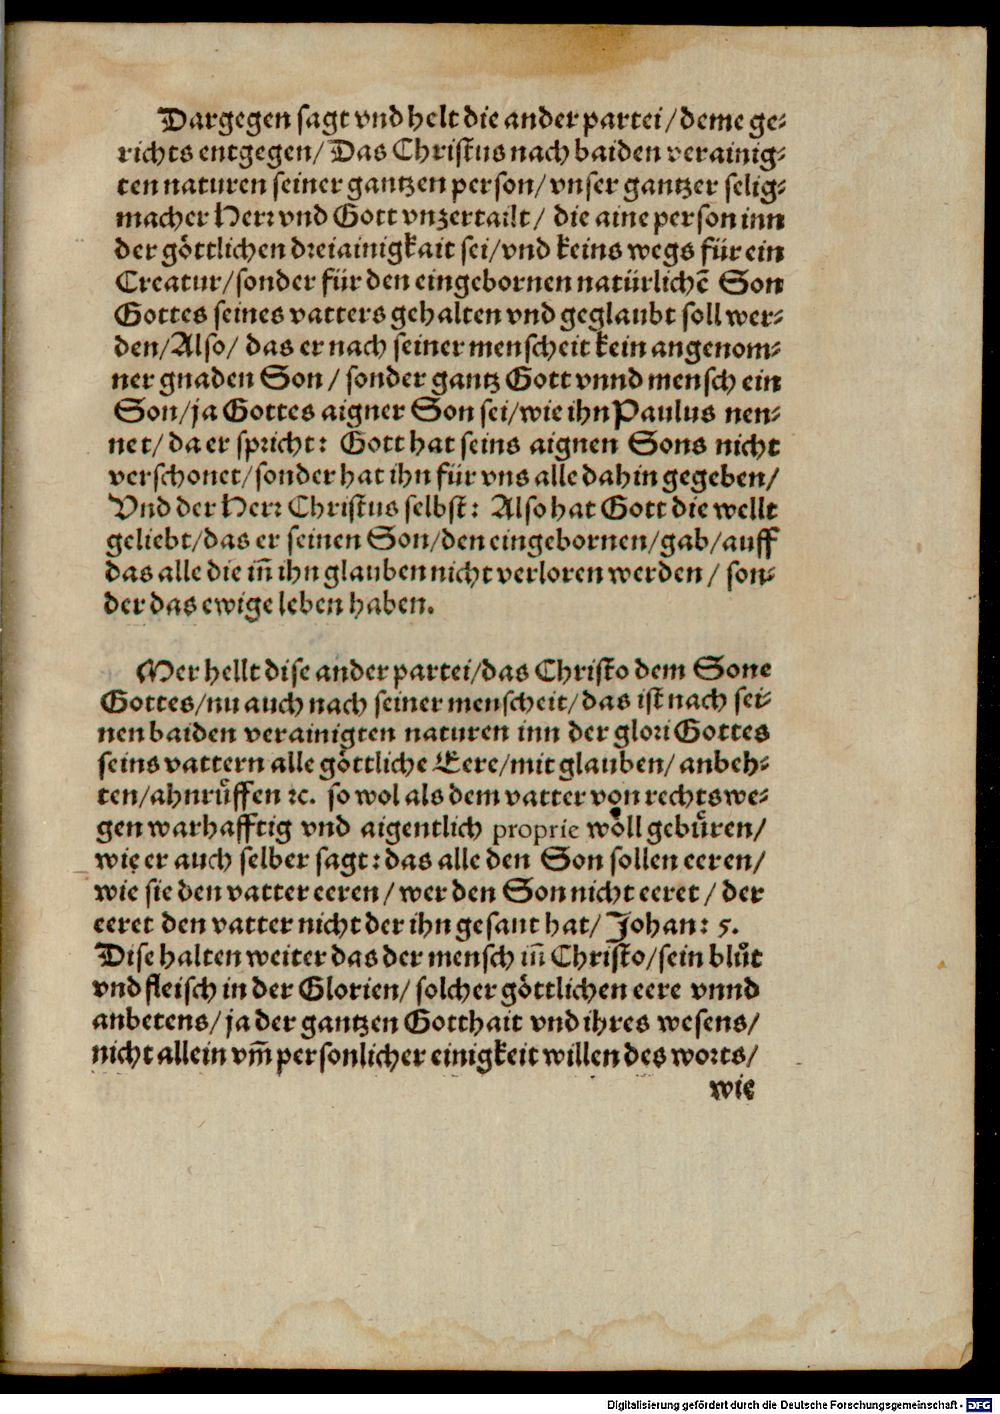 Dargegen sagt vnd helt die ander partei / deme ge⸗
richts entgegen/ Das Christus nach baiden verainig⸗
ten naturen seiner gantzen person/ vnser gantzer selig⸗
macher Herr vnd Gott vnzertailt / die aine person inn
der göttlichen dreiainigkait sei/ vnd keins wegs für ein
Creatur/ sonder für den eingebornen natürlichē Son
Gottes seines vatters gehalten vnd geglaubt soll wer⸗
den/ Also/ das er nach seiner menscheit kein angenom⸗
ner gnaden Son / sonder gantz Gott vnnd mensch ein
Son/ ja Gottes aigner Son sei/ wie ihn Paulus nen⸗
net/ da er spricht: Gott hat seins aignen Sons nicht
verschonet/ sonder hat ihn für vns alle dahin gegeben/
Vnd der Herr Christus selbst: Also hat Gott die wellt
geliebt/ das er seinen Son/ den eingebornen/ gab/ auff
das alle die iñ ihn glauben nicht verloren werden / son⸗
der das ewige leben haben.
Mer hellt dise ander partei/ das Christo dem Sone
Gottes/ nu auch nach seiner menscheit/ das ist nach sei⸗
nen baiden verainigten naturen inn der glori Gottes
seins vattern alle göttliche Eere/ mit glauben/ anbeh⸗
ten/ ahnrůffen ꝛc. so wol als dem vatter von rechts we⸗
gen warhafftig vnd aigentlich proprie wöll gebüren/
wie er auch selber sagt: das alle den Son sollen eeren/
wie sie den vatter eeren / wer den Son nicht eeret / der
eeret den vatter nicht der ihn gesant hat/ Johan: 5.
Dise halten weiter das der mensch iñ Christo/ sein blůt
vnd fleisch in der Glorien/ solcher göttlichen eere vnnd
anbetens/ ja der gantzen Gotthait vnd ihres wesens/
nicht allein vm̃ personlicher einigkeit willen des worts/
wie
Digitalisierung gefördert durch die Deutsche Forschungsgemeinschaft - DFG